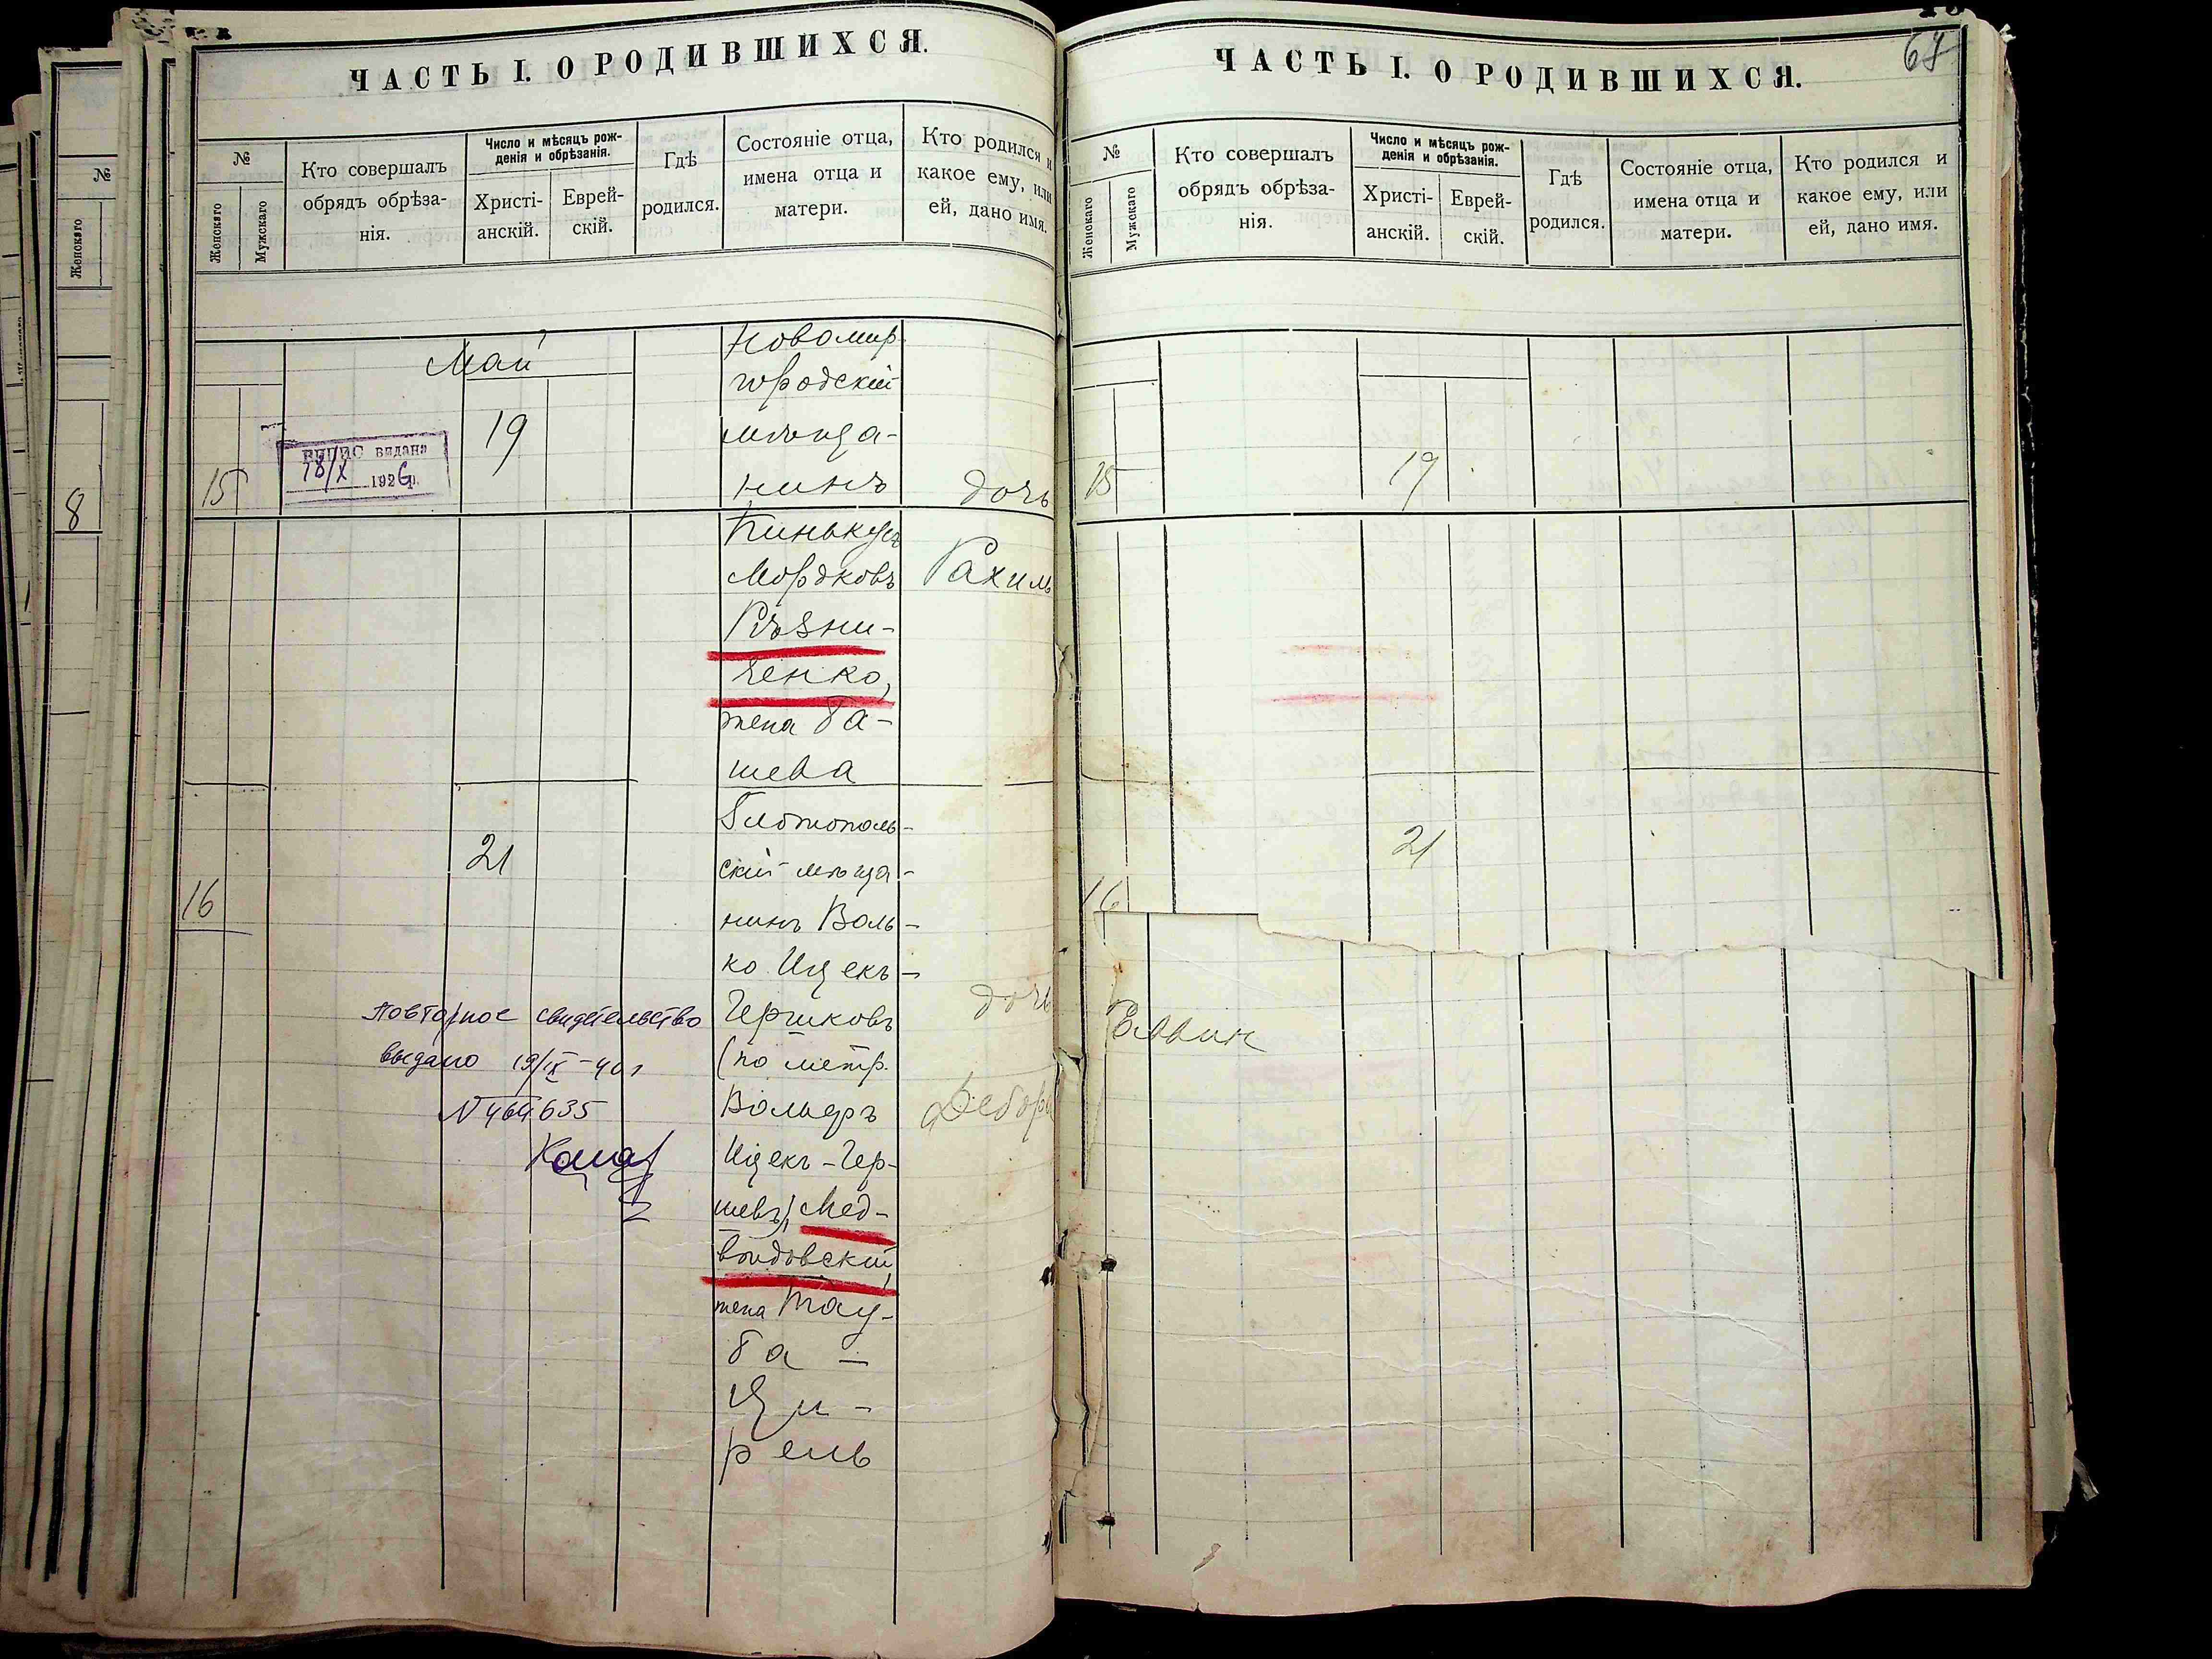 ЧАСТЬ I. О РОДИВШИХСЯ.
№
Женскаго
Мужскаго
Кто совершалъ
обрядъ обрѣза-
нія.
Число и мѣсяцъ рож-
денія и обрѣзанія.
Христі-
анскій.
Еврей-
скій.
Гдѣ
родился.
Состояніе отца,
имена отца и
матери.
Кто родился и
какое ему, или
ей, дано имя.
Май
15
ВИПИС видана
18/X 1926 р.
19
Новомир
городскій
мѣща-
нинъ
Пинькусъ
Мордковъ
Рѣзни-
ченко,
жена Ба-
шева
дочь
Рахиль
16
21
Златополь-
скій мѣща-
нинъ Воль-
ко Ицекъ-
Гершковъ
(по метр.
Вольфъ
Ицекъ-Гер-
шевъ) Мед-
вѣдовскій,
жена Тау-
ба -
Ци-
рель
дочь
Дебора
повторное свидетельство
выдано 19/IX-40 г
N 464635
№
Женскаго
8
ЧАСТЬ I. О РОДИВШИХСЯ.
64
№
Женскаго
Мужскаго
Кто совершалъ
обрядъ обрѣза-
нія.
Число и мѣсяцъ рож-
денія и обрѣзанія.
Христі-
анскій.
Еврей-
скій.
Гдѣ
родился.
Состояніе отца,
имена отца и
матери.
Кто родился и
какое ему, или
ей, дано имя.
15
19
16
21